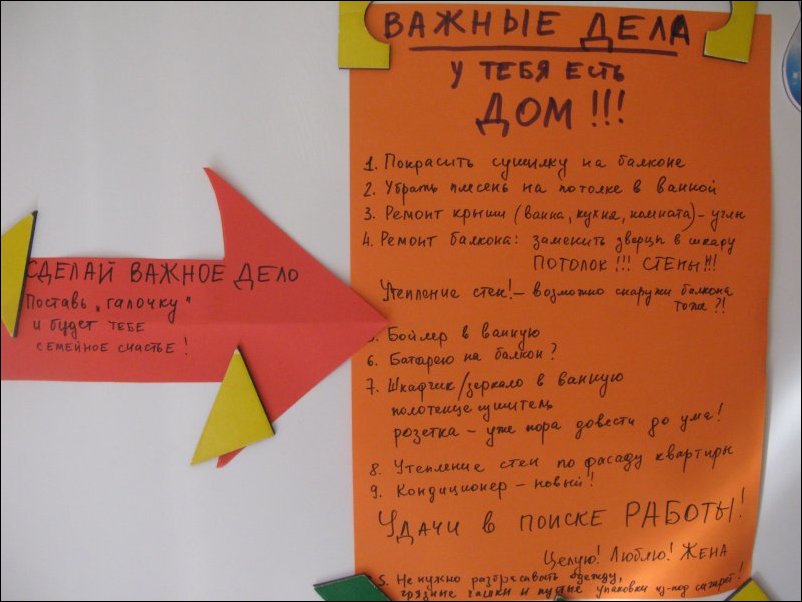 ВАЖНЫЕ ДЕЛА
У ТЕБЯ ЕСТЬ
ДОМ!!!
1. Покрасить сушилку на балконе
2. Убрать плесень на потолке в ванной
3. Ремонт крыши (ванна, кухня, комната) – углы
4. Ремонт балкона: заменить дверцы в шкафу
ПОТОЛОК!!! СТЕНЫ!!!
Утепление стен! – возможно снаружи балкона
тоже?!
5. Бойлер в ванную
6. Батарею на балкон?
7. Шкафчик/зеркало в ванную
полотенцесушитель
розетка – уже пора довести до ума!
8. Утепление стен по фасаду квартиры
9. Кондиционер – новый!
УДАЧИ В ПОИСКЕ РАБОТЫ!
Целую! Люблю! ЖЕНА
S. Не нужно разбрасывать одежду,
грязные чашки и пустые упаковки из-под сигарет!
СДЕЛАЙ ВАЖНОЕ ДЕЛО
Поставь „галочку"
и будет тебе
семейное счастье!